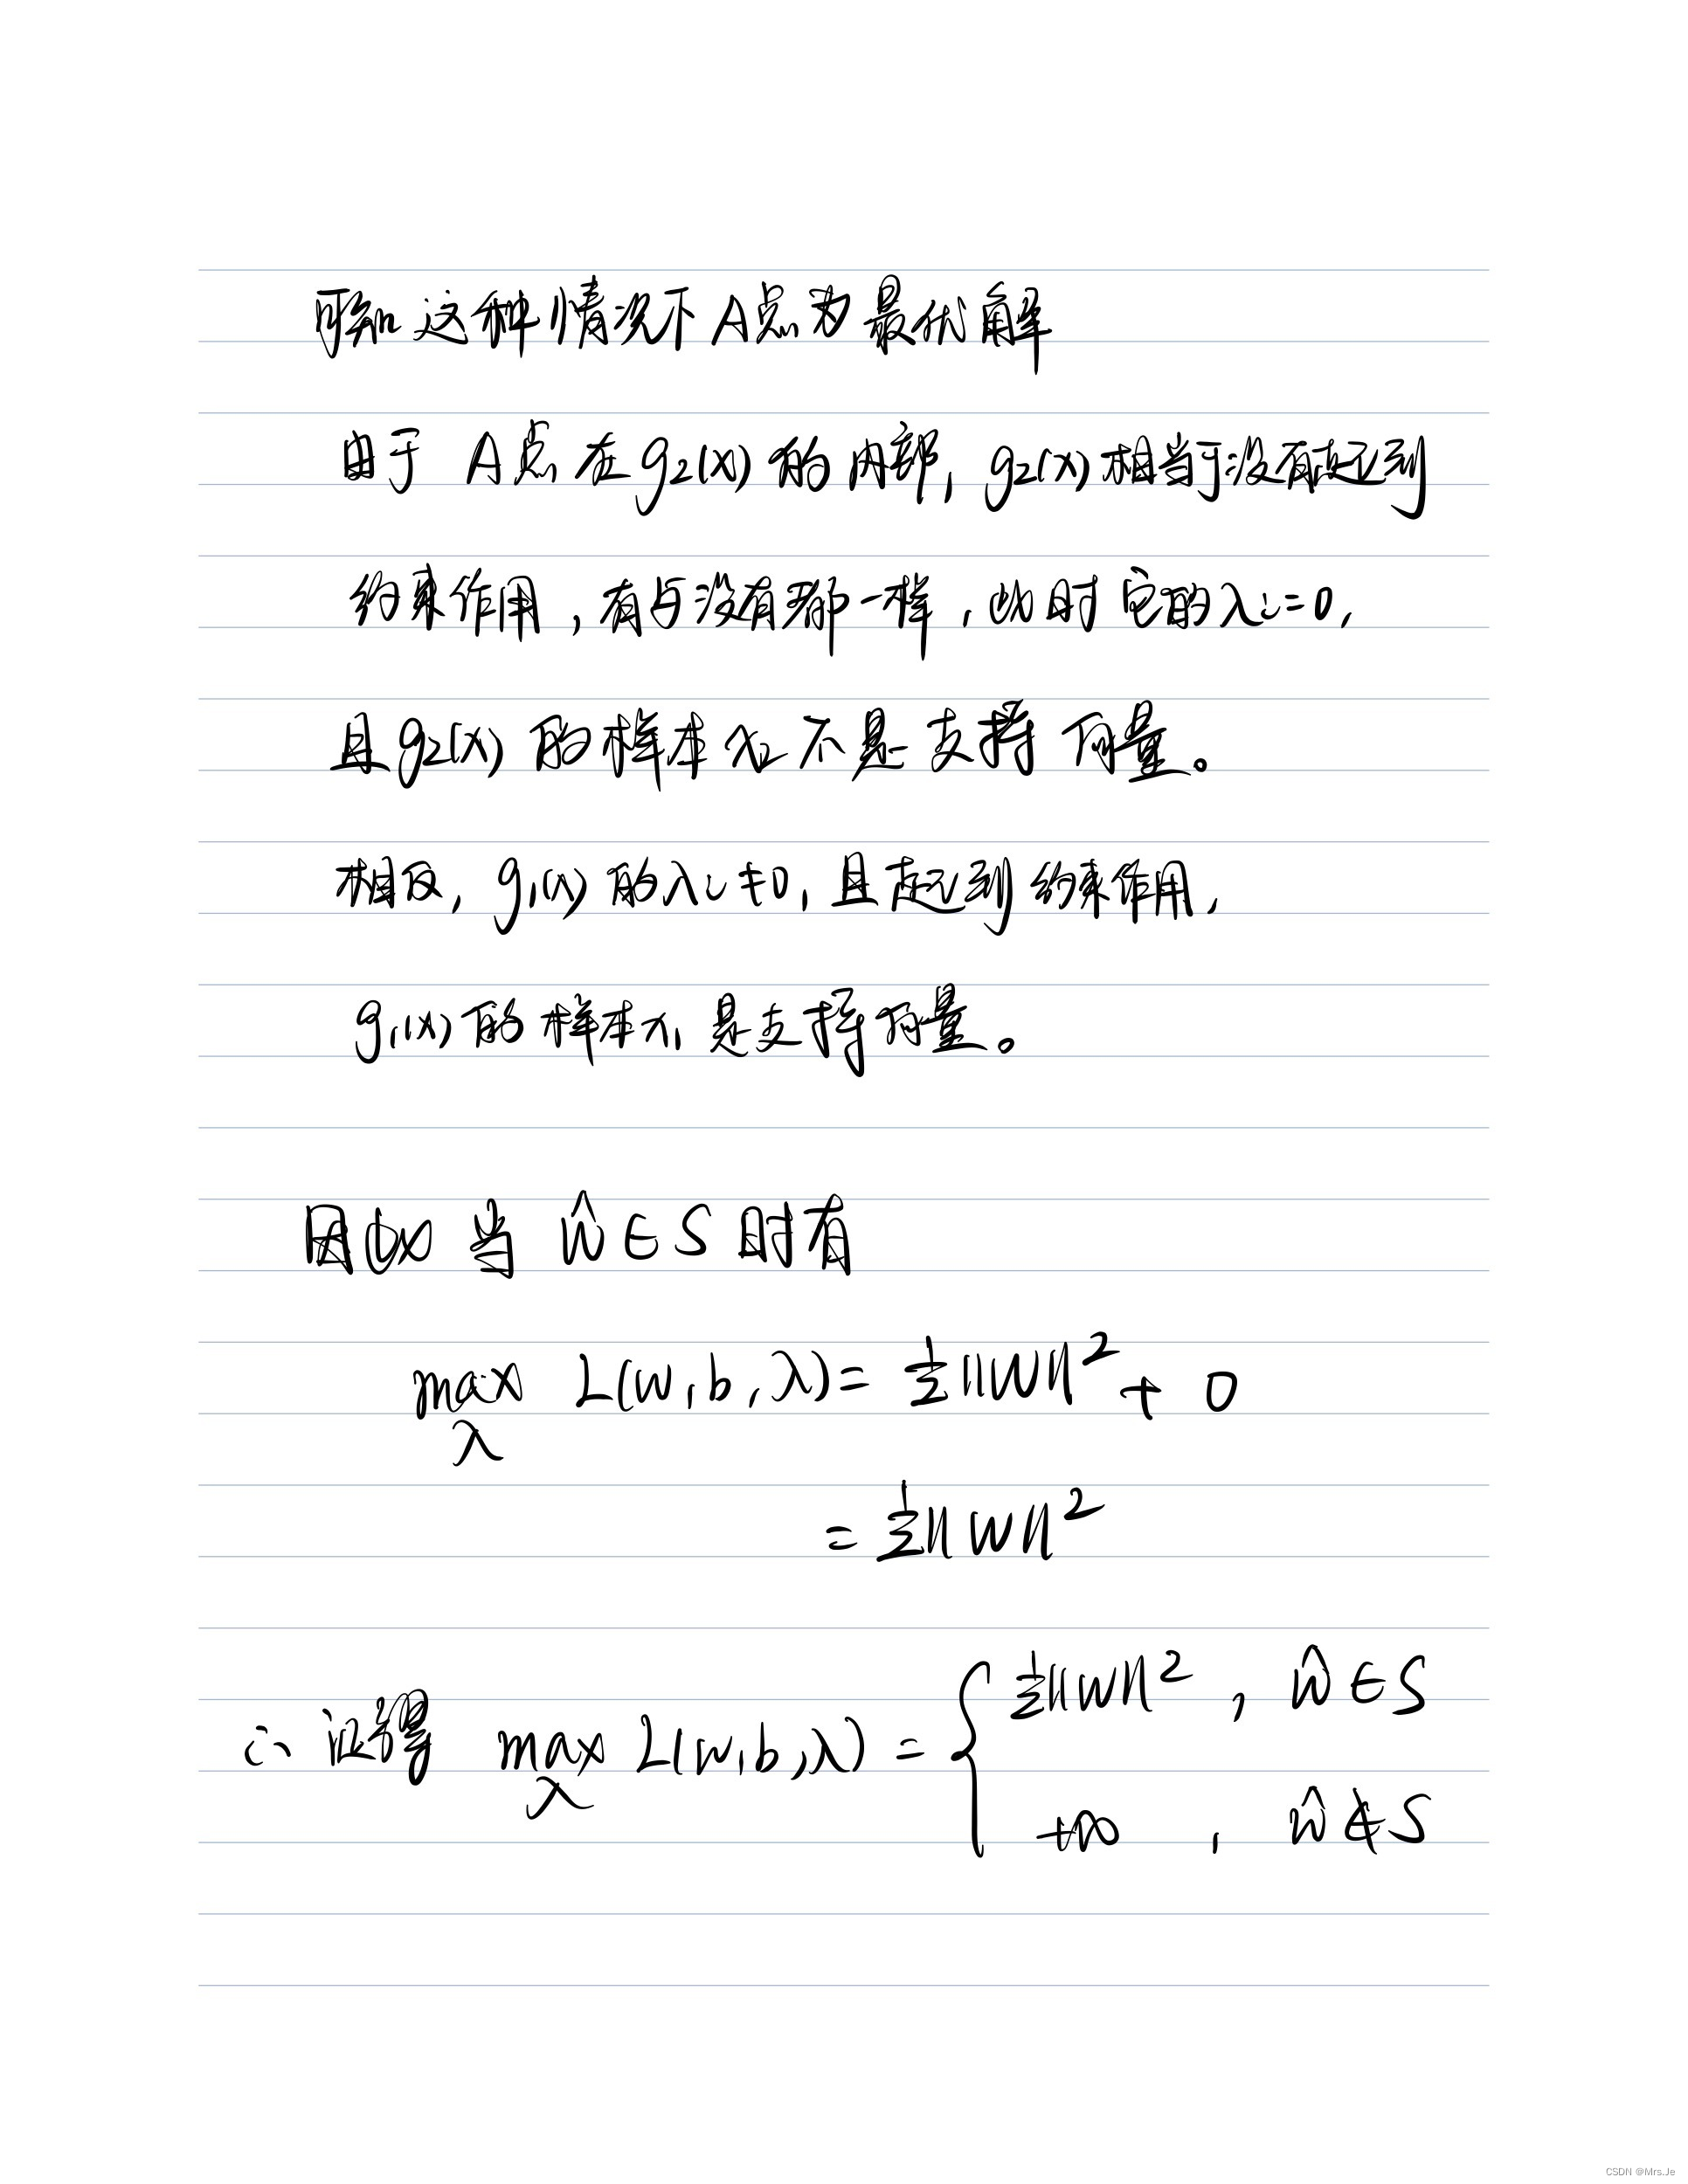 可知这种情况下A点为最优解
由于 A点在g₂(x)的内部, g₂(x)相当于没有起到
约束作用,有与没有都一样,此时它的λi=0,
且g₂(x)的样本x₂不是支持向量。
相反, g₁(x)的λi≠0,且起到约束作用,
g₁(x)的样本x₁是支持向量。
因此 当 ŵ∈S 时有
max L(w,b,λ)= ½||w||² + 0
λ
= ½||w||²
∴ 证得 max L(w,b,λ) = { ½||w||² , ŵ∈S
λ
+∞ , ŵ∉S
CSDN @Mrs.Je